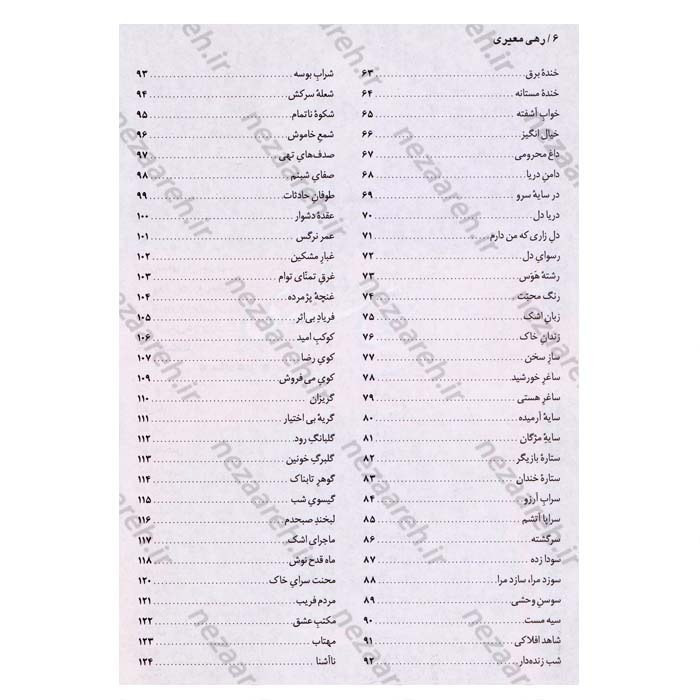 ۶ / رهی معیری
خندهٔ برق ۶۳
خندهٔ مستانه ۶۴
خوابِ آشفته ۶۵
خیال انگیز ۶۶
داغ محرومی ۶۷
دامنِ دریا ۶۸
در سایهٔ سرو ۶۹
دریا دل ۷۰
دلِ زاری که من دارم ۷۱
رسوایِ دل ۷۲
رشتهٔ هَوَس ۷۳
رنگ محبّت ۷۴
زبانِ اشک ۷۵
زندانِ خاک ۷۶
سازِ سخن ۷۷
ساغرِ خورشید ۷۸
ساغرِ هستی ۷۹
سایهٔ آرمیده ۸۰
سایهٔ مژگان ۸۱
ستارهٔ بازیگر ۸۲
ستارهٔ خندان ۸۳
سرابِ آرزو ۸۴
سراپا آتشم ۸۵
سرگشته ۸۶
سودا زده ۸۷
سوزد مرا، سازد مرا ۸۸
سوسنِ وحشی ۸۹
سیه مست ۹۰
شاهد افلاکی ۹۱
شب زنده‌دار ۹۲
شرابِ بوسه ۹۳
شعلهٔ سرکش ۹۴
شکوهٔ ناتمام ۹۵
شمعِ خاموش ۹۶
صدف‌هایِ تهی ۹۷
صفایِ شبنم ۹۸
طوفانِ حادثات ۹۹
عقدهٔ دشوار ۱۰۰
عمر نرگس ۱۰۱
غبارِ مشکین ۱۰۲
غرقِ تمنّای توام ۱۰۳
غنچهٔ پژمرده ۱۰۴
فریادِ بی‌اثر ۱۰۵
کوکبِ امید ۱۰۶
کویِ رضا ۱۰۷
کویِ می فروش ۱۰۹
گریزان ۱۱۰
گریهٔ بی اختیار ۱۱۱
گلبانگِ رود ۱۱۲
گلبرگِ خونین ۱۱۳
گوهرِ تابناک ۱۱۴
گیسویِ شب ۱۱۵
لبخندِ صبحدم ۱۱۶
ماجرایِ اشک ۱۱۷
ماه قدح نوش ۱۱۸
محنت سرایِ خاک ۱۲۰
مردم فریب ۱۲۱
مکتبِ عشق ۱۲۲
مهتاب ۱۲۳
ناآشنا ۱۲۴
nezaareh.ir